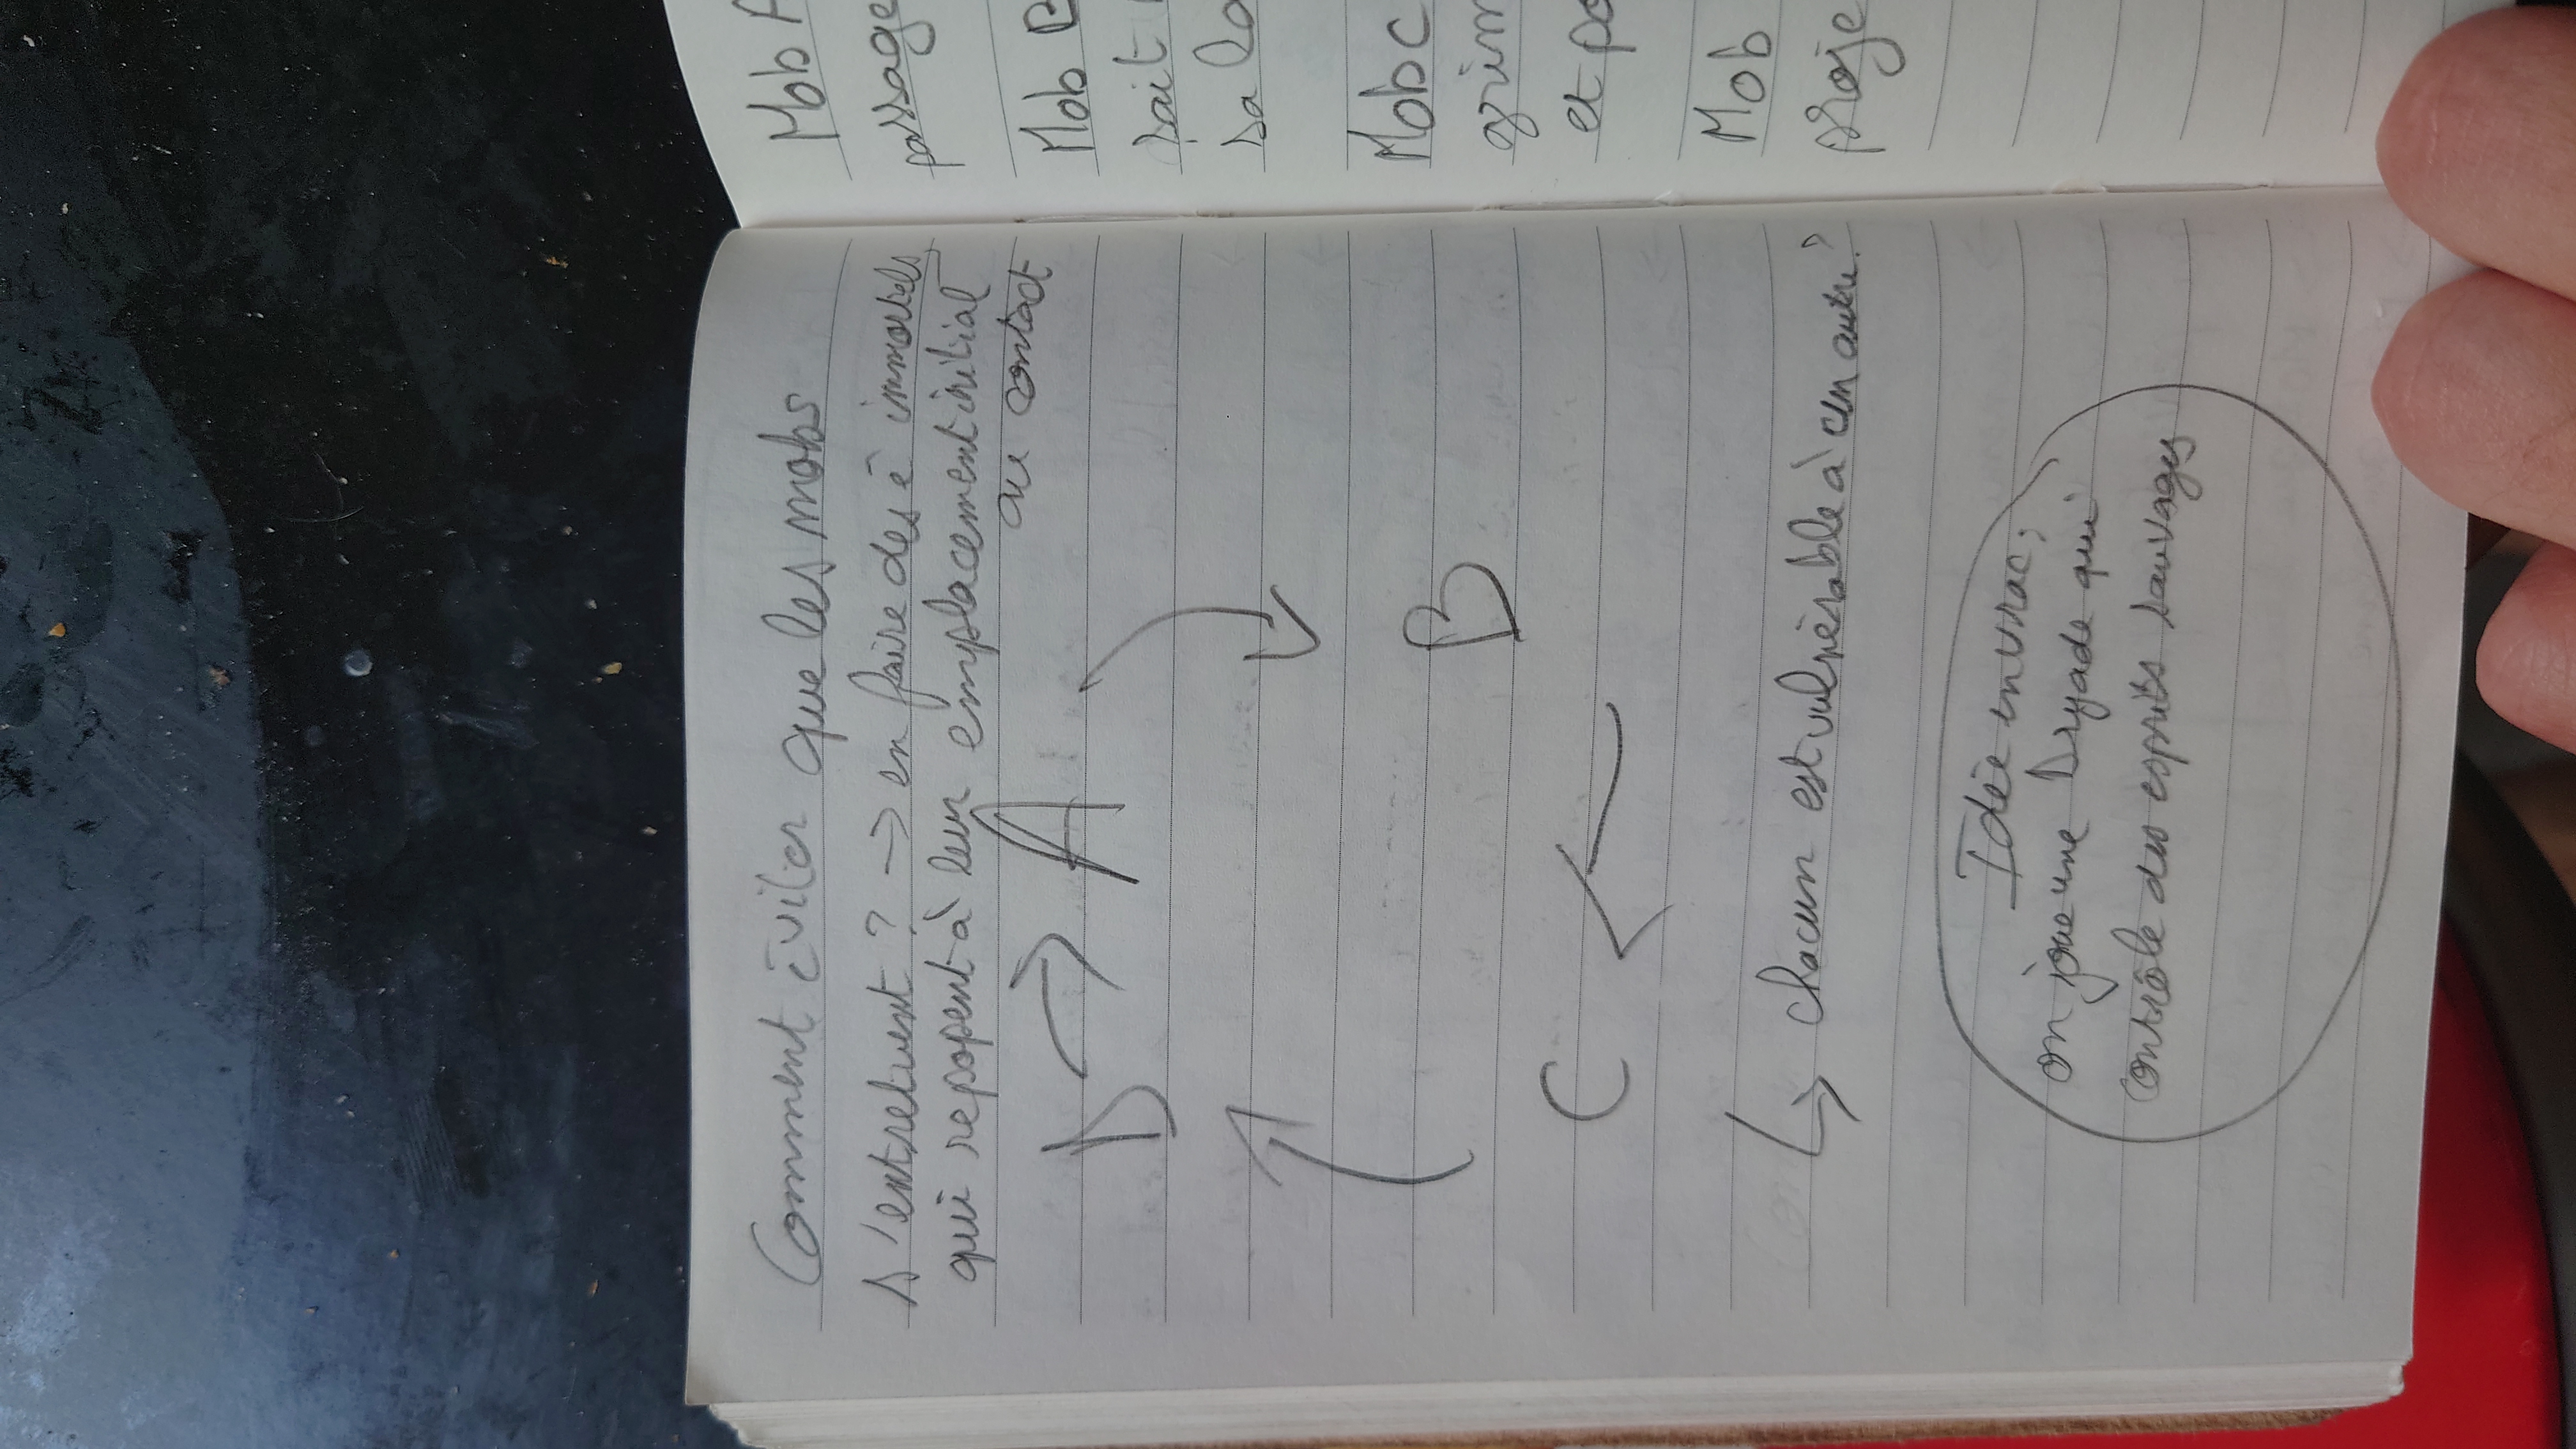 Comment éviter que les mobs
s'entretuent ? → en faire des ê immortels
qui repopent à leur emplacement initial
au contact
D → A
B
C
↳ chacun est vulnérable à un autre ?
Idée en vrac :
on joue une Dryade qui
contrôle des esprits sauvages
Mob A
passage
Mob B
sait
sa
Mob C
grim
et po
Mob
proje